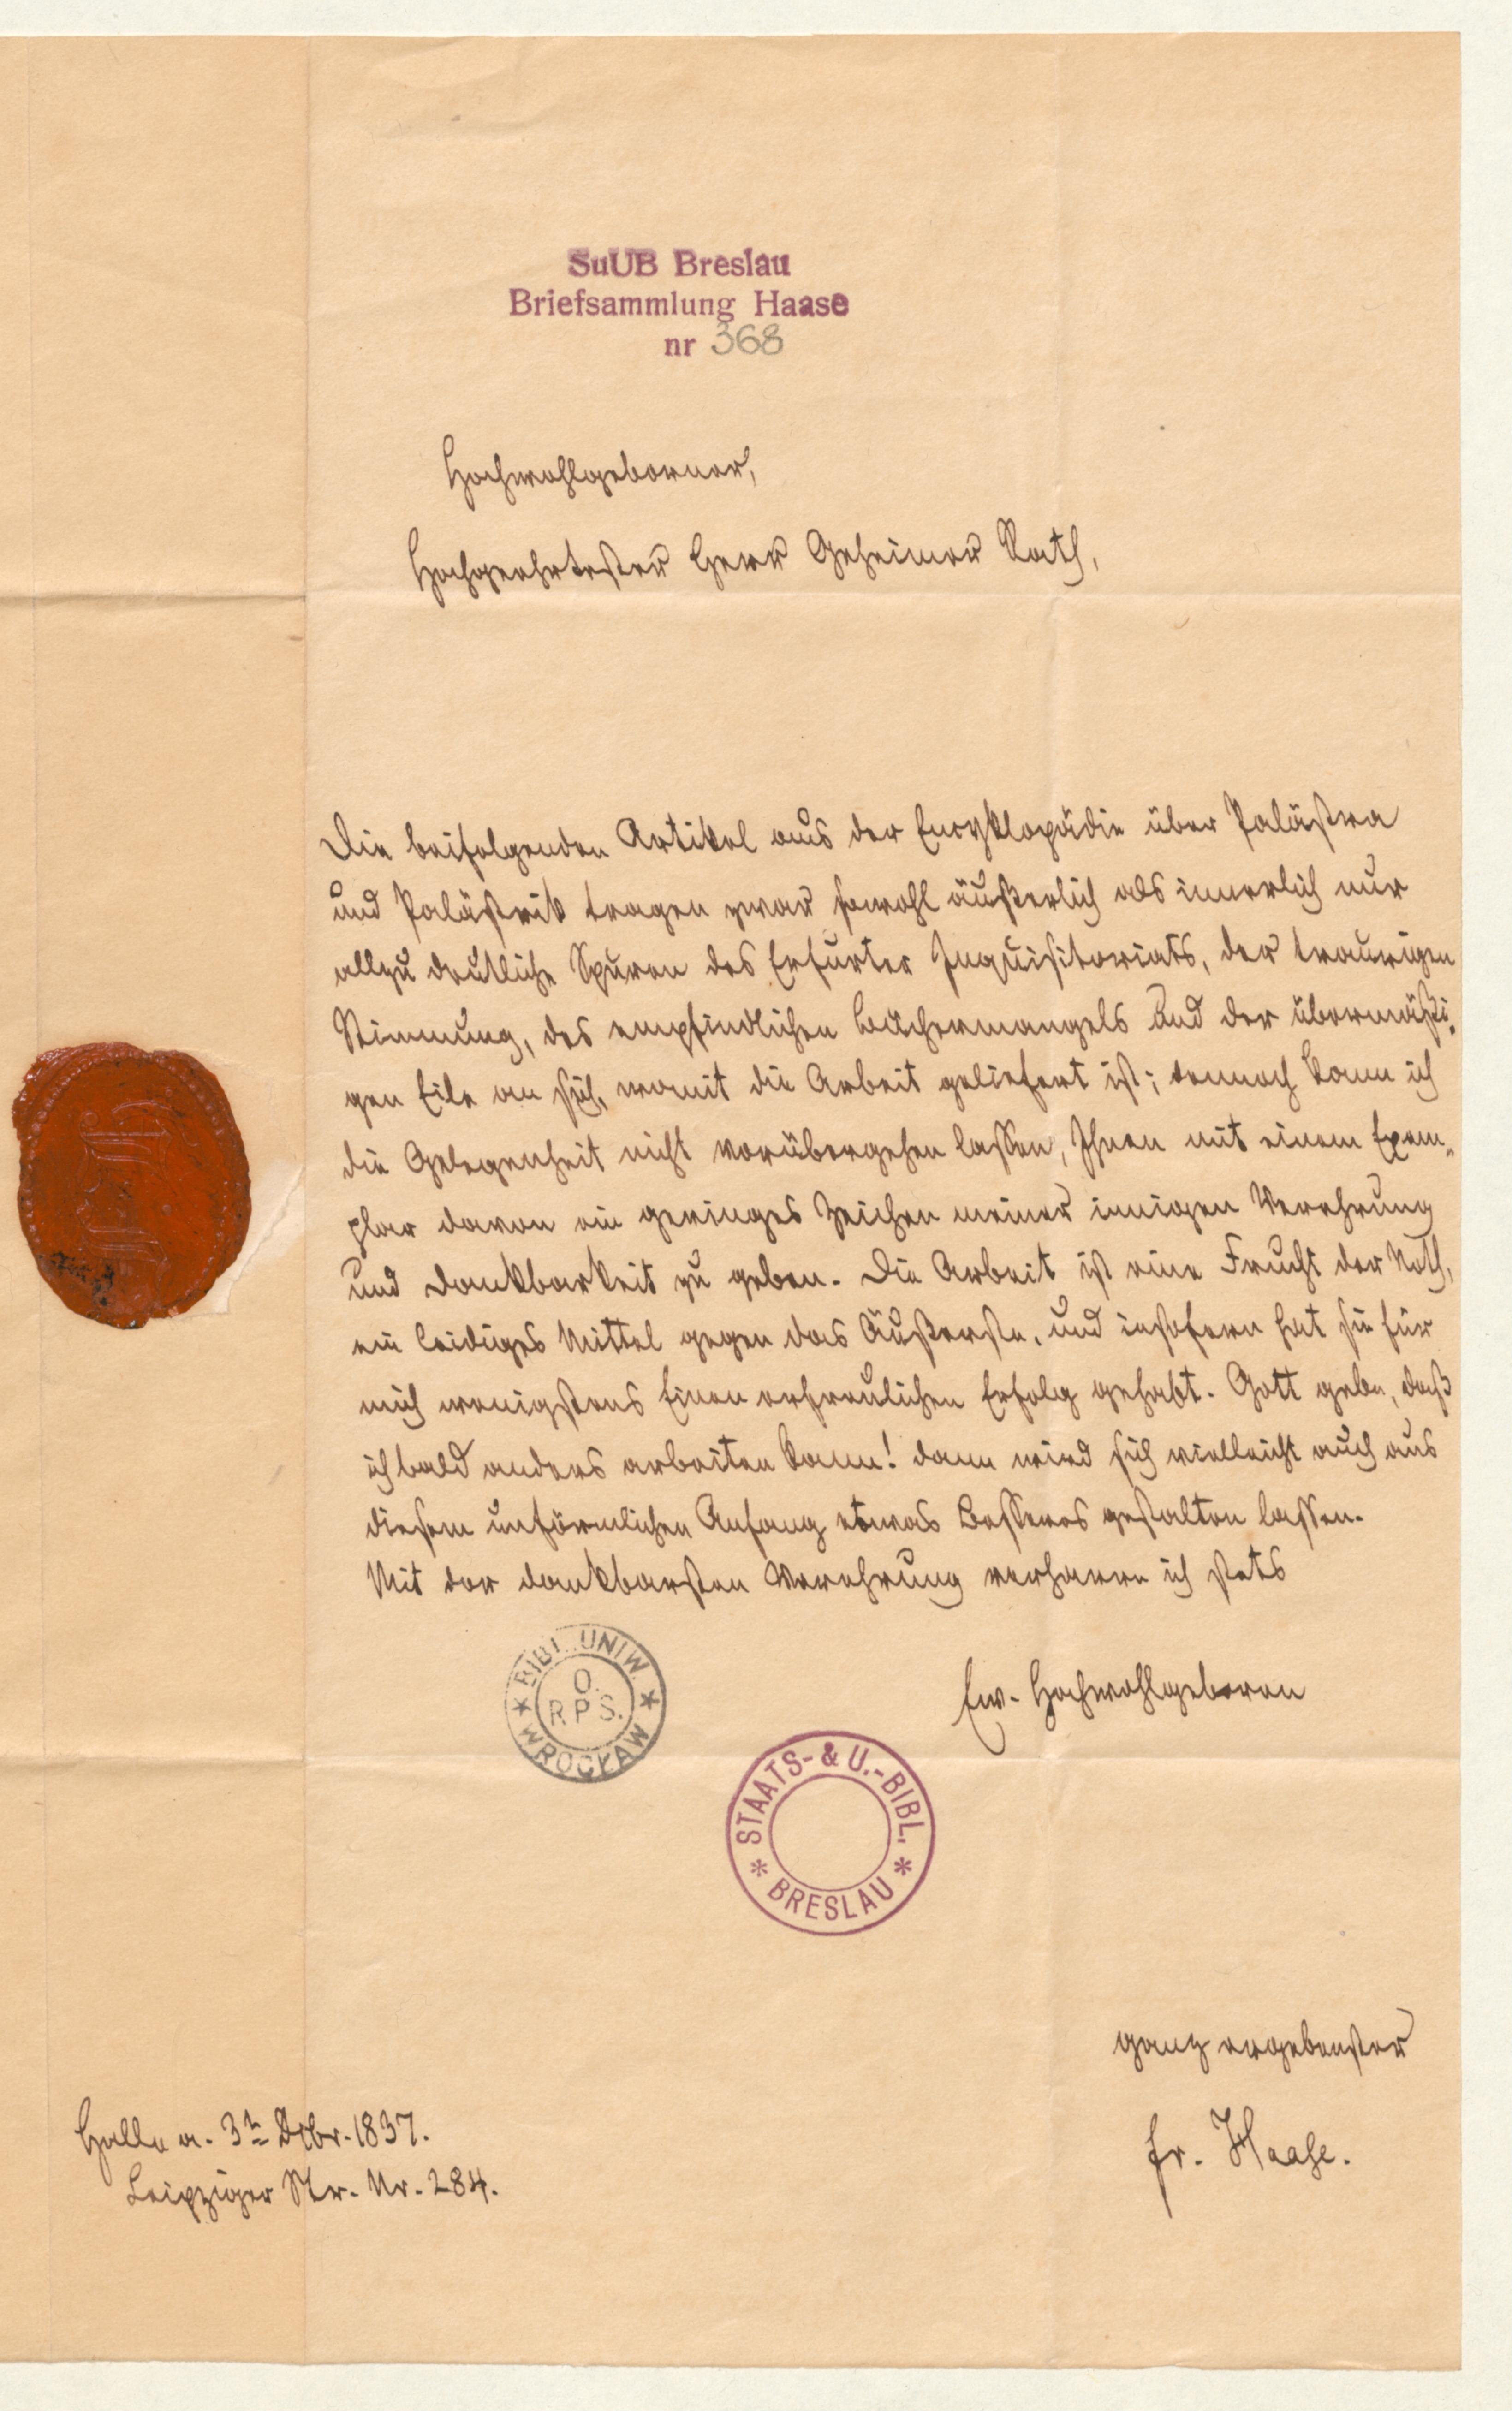 SuUB Breslau
Briefsammlung Haase
nr 368
Hochwohlgeborner,
Hochgeehrtester Herr Geheimer Rath,
Die beifolgenden Artikel aus der Encyklopädie über Palästra
und Palästrik tragen zwar sowohl äußerlich als innerlich nur
allzu deutliche Spuren des Erfurter Inquisitoriats, der traurigen
Stimmung, des empfindlichen Büchermangels und der übermäßi-
gen Eile an sich, womit die Arbeit geliefert ist; dennoch kann ich
die Gelegenheit nicht vorübergehen lassen, Ihnen mit einem Exem-
plar davon ein geringes Zeichen meiner innigen Verehrung
und Dankbarkeit zu geben. Die Arbeit ist eine Frucht der Noth,
ein leidiges Mittel gegen das Äußerste, und insofern hat sie für
mich wenigstens Einen erfreulichen Erfolg gehabt. Gott gebe, daß
ich bald anders arbeiten kann! dann wird sich vielleicht auch aus
diesem unförmlichen Anfang etwas Besseres gestalten lassen.
Mit der dankbarsten Verehrung verharre ich stets
BIBL. UNIW.
O.
RPS.
WROCŁAW
Ew. Hochwohlgeboren
STAATS- & U.-BIBL.
BRESLAU
ganz ergebenster
Fr. Haase.
Halle a. 3tn Dcbr. 1837.
Leipziger Str. Nr. 284.